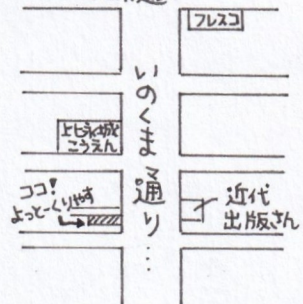 フレスコ
いのくま通り…
上ヒ永城
こうえん
ココ!
よっとーくりやす
近代
出版さん